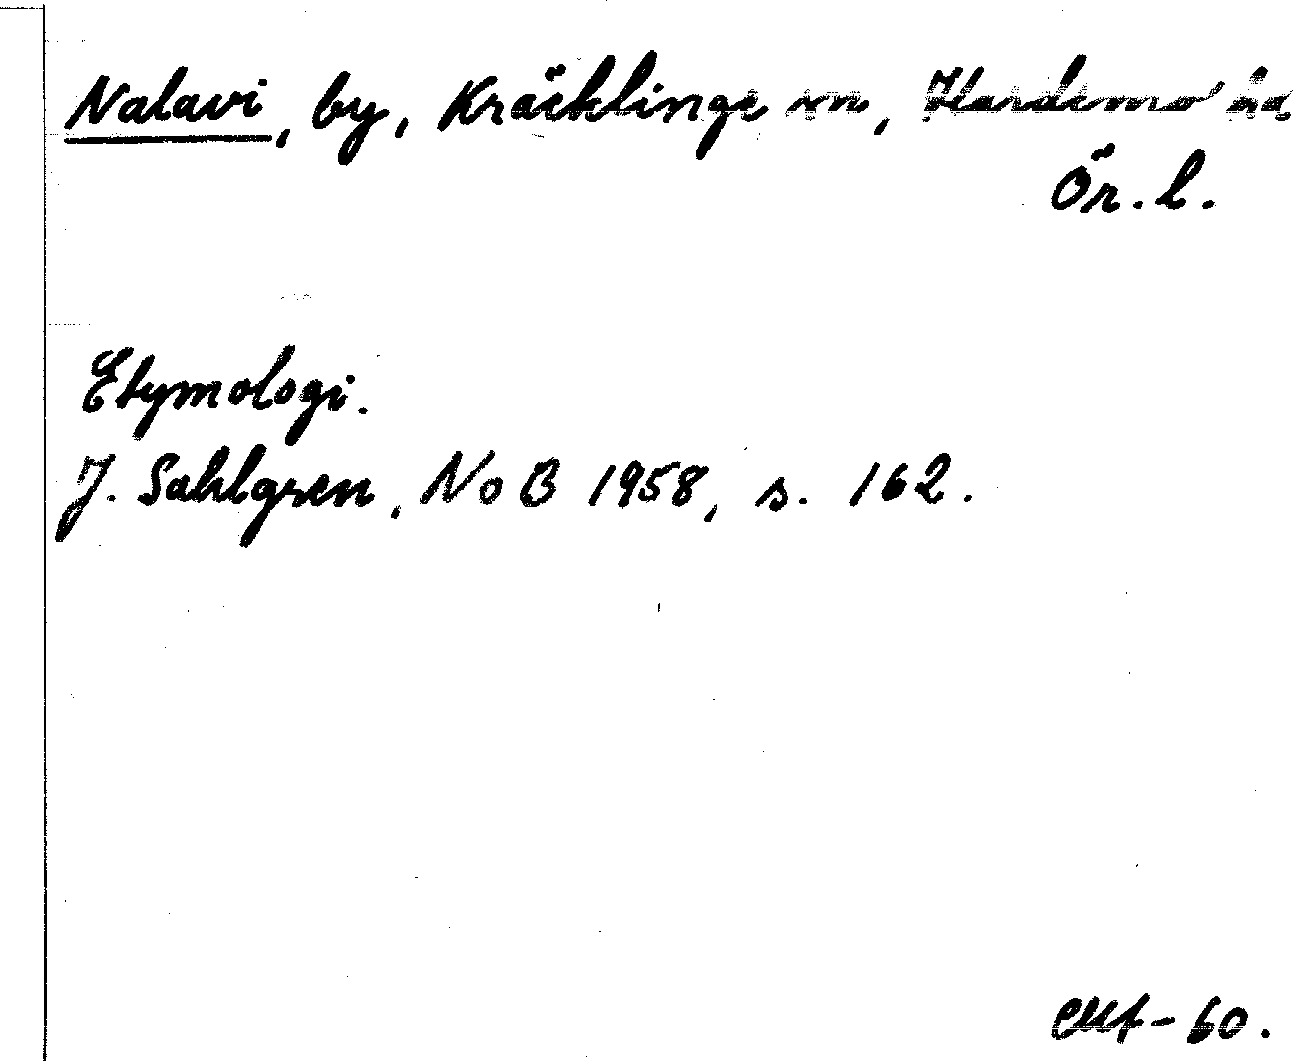 Nalavi, by, Kräcklinge sn, Hardemo hd
Ör. l.
Etymologi.
J. Sahlgren, NoB 1958, s. 162.
-60.